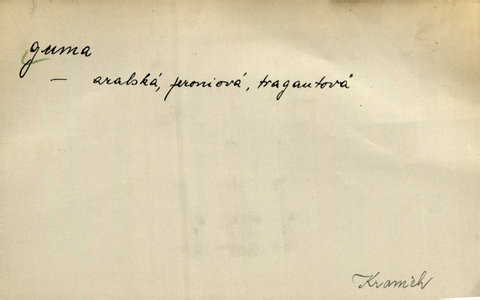 guma
— arabská, feroniová, tragantová
Kramich